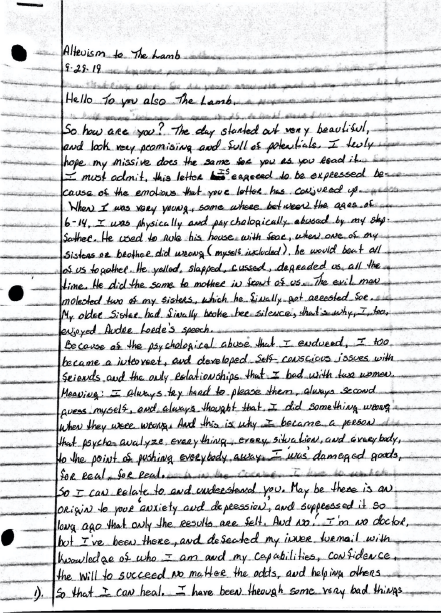 Altruism to The Lamb
9-29-19
Hello To you also The Lamb,
So how are you? The day started out very beautiful,
and look very promising and full of potentials. I truly
hope my missive does the same for you as you read it.
I must admit, this letter is espected to be expressed be-
cause of the emotions that your letter has conjured up.
When I was very young, some where between the ages of
6-14, I was physically and psychologically abused by my step-
father. He used to rule his house with fear, when one of my
sisters or brother did wrong (myself included), he would beat all
of us together. He yelled, slapped, cussed, degraded us, all the
time. He did the same to mother in front of us. The evil man
molested two of my sisters, which he finally got arrested for.
My older Sister had finally broke her silence, that's why, I, too,
enjoyed Audre Lorde's speech.
Because of the psychological abuse that I endured, I too
became a introvert, and developed self-conscious issues with
friends, and the only relationships that I had with two women.
Meaning: I always try hard to please them, always second
guess myself, and always thought that I did something wrong
when they were wrong. And this is why I became a person
that psycho analyze, everything, every situation, and everybody,
to the point of pushing everybody away. I was damaged goods,
for real, for real.
So I can relate to and understand you. May be there is an
origin to your anxiety and depression, and suppressed it so
long ago that only the results are felt. And no! I'm no doctor,
but I've been there, and defeated my inner turmail with
knowledge of who I am and my capabilities, confidence,
the will to succeed no matter the odds, and helping others
so that I can heal. I have been through some very bad things
1).